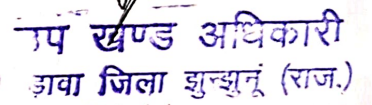 उप खण्ड अधिकारी
डावा जिला झुन्झुनूं (राज.)